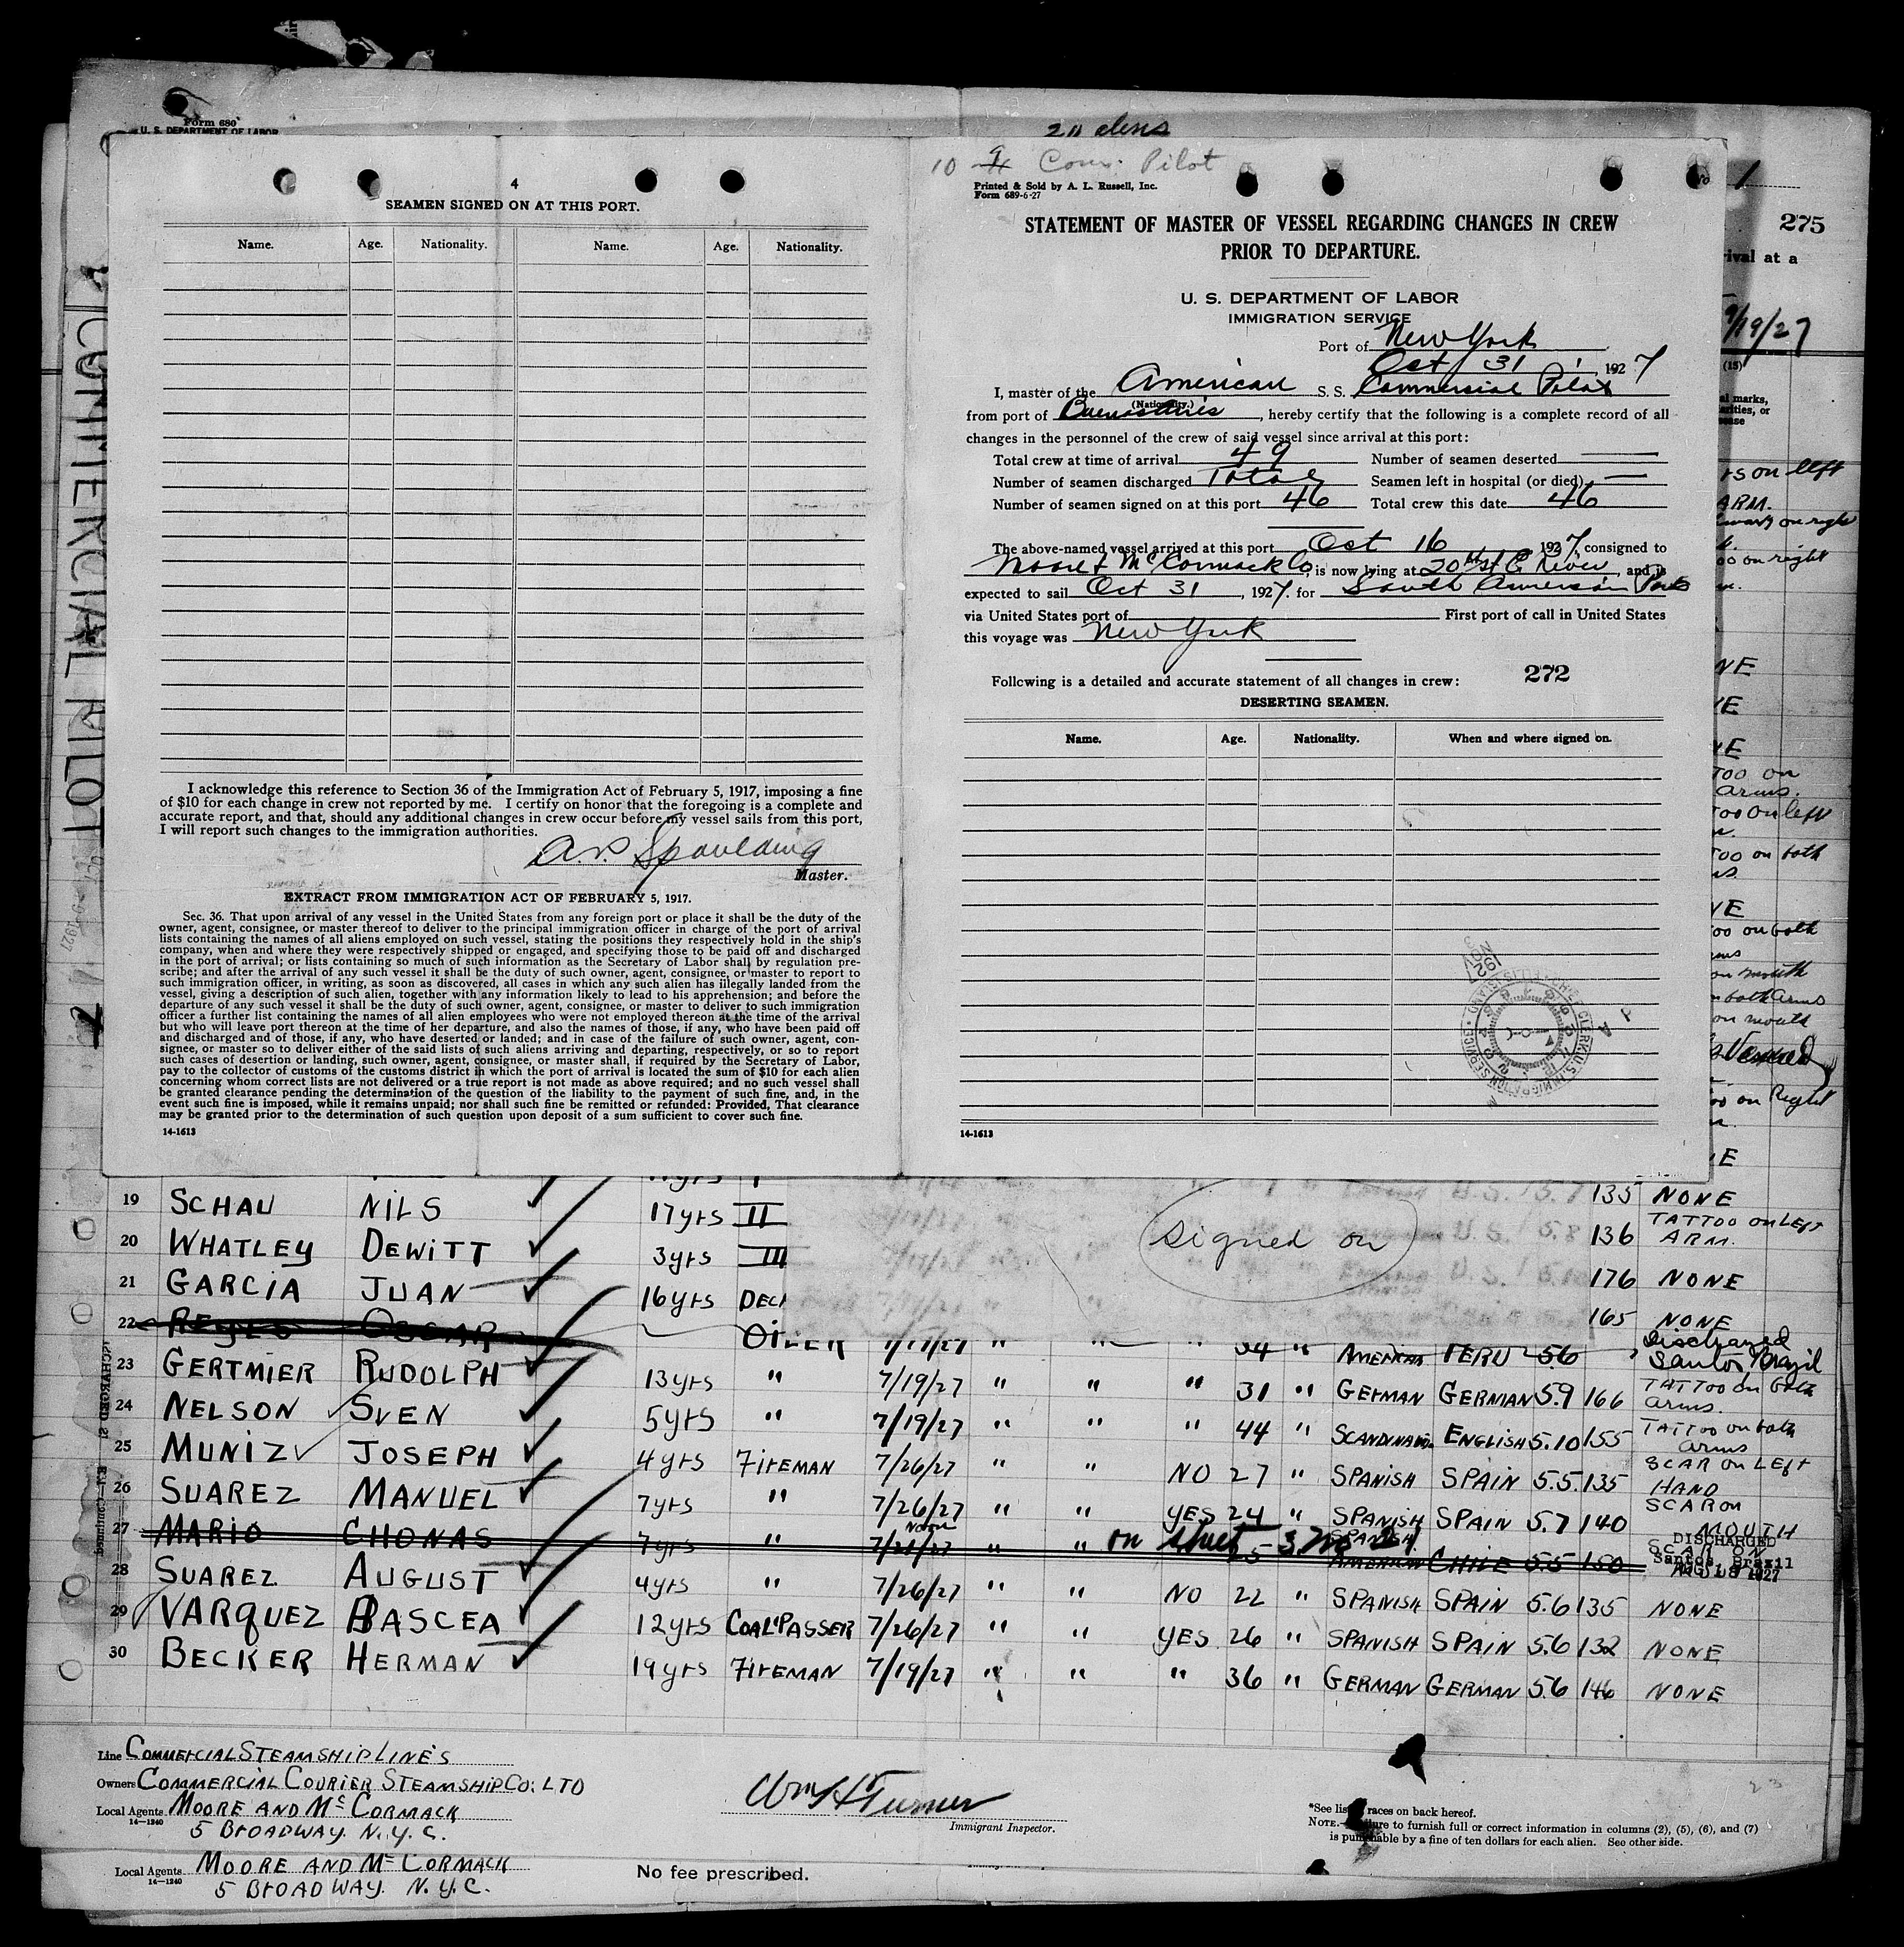 Form 680
U. S. DEPARTMENT OF LABOR
COMMERCIAL PILOT
4
SEAMEN SIGNED ON AT THIS PORT.
Name. Age. Nationality. Name. Age. Nationality.
I acknowledge this reference to Section 36 of the Immigration Act of February 5, 1917, imposing a fine
of $10 for each change in crew not reported by me. I certify on honor that the foregoing is a complete and
accurate report, and that, should any additional changes in crew occur before my vessel sails from this port,
I will report such changes to the immigration authorities.
Spaulding
Master.
EXTRACT FROM IMMIGRATION ACT OF FEBRUARY 5, 1917.
Sec. 36. That upon arrival of any vessel in the United States from any foreign port or place it shall be the duty of the
owner, agent, consignee, or master thereof to deliver to the principal immigration officer in charge of the port of arrival
lists containing the names of all aliens employed on such vessel, stating the positions they respectively hold in the ship's
company, when and where they were respectively shipped or engaged, and specifying those to be paid off and discharged
in the port of arrival; or lists containing so much of such information as the Secretary of Labor shall by regulation pre-
scribe; and after the arrival of any such vessel it shall be the duty of such owner, agent, consignee, or master to report to
such immigration officer, in writing, as soon as discovered, all cases in which any such alien has illegally landed from the
vessel, giving a description of such alien, together with any information likely to lead to his apprehension; and before the
departure of any such vessel it shall be the duty of such owner, agent, consignee, or master to deliver to such immigration
officer a further list containing the names of all alien employees who were not employed thereon at the time of the arrival
but who will leave port thereon at the time of her departure, and also the names of those, if any, who have been paid off
and discharged and of those, if any, who have deserted or landed; and in case of the failure of such owner, agent, con-
signee, or master so to deliver either of the said lists of such aliens arriving and departing, respectively, or so to report
such cases of desertion or landing, such owner, agent, consignee, or master shall, if required by the Secretary of Labor,
pay to the collector of customs of the customs district in which the port of arrival is located the sum of $10 for each alien
concerning whom correct lists are not delivered or a true report is not made as above required; and no such vessel shall
be granted clearance pending the determination of the question of the liability to the payment of such fine, and, in the
event such fine is imposed, while it remains unpaid; nor shall such fine be remitted or refunded: Provided, That clearance
may be granted prior to the determination of such question upon deposit of a sum sufficient to cover such fine.
14-1613
10 9 Com. Pilot
Printed & Sold by A. L. Russell, Inc.
Form 689-6-27
STATEMENT OF MASTER OF VESSEL REGARDING CHANGES IN CREW
PRIOR TO DEPARTURE.
U. S. DEPARTMENT OF LABOR
IMMIGRATION SERVICE
Port of New York
Oct 31, 1927
I, master of the American S. S. Commercial Pilot
(Nationality.)
from port of Buenos Aires, hereby certify that the following is a complete record of all
changes in the personnel of the crew of said vessel since arrival at this port:
Total crew at time of arrival 49 Number of seamen deserted —
Number of seamen discharged Total Seamen left in hospital (or died) —
Number of seamen signed on at this port 46 Total crew this date 46
The above-named vessel arrived at this port Oct 16, 1927, consigned to
Moore & McCormack Co, is now lying at 20th St E River, and is
expected to sail Oct 31, 1927. for South American Ports
via United States port of First port of call in United States
this voyage was New York
Following is a detailed and accurate statement of all changes in crew: 272
DESERTING SEAMEN.
Name. Age. Nationality. When and where signed on.
14-1613
1
275
rival at a
9/19/27
(15)
19 SCHAU NILS 17yrs II 135 NONE
20 WHATLEY DEWITT 3yrs III 136 TATTOO ON LEFT ARM.
21 GARCIA JUAN 16yrs DECK 176 NONE
165 NONE
signed on
22 REYES OSCAR OILER 7/19/27 " " " 34 " AMERICAN PERU 5.6 Discharged Santos, Brazil
23 GERTMIER RUDOLPH 13yrs " 7/19/27 " " " 31 " GERMAN GERMAN 5.9 166 TATTOO on both arms.
24 NELSON SVEN 5yrs " 7/19/27 " " " 44 " SCANDINAVN. ENGLISH 5.10 155 TATTOO on both arms
25 MUNIZ JOSEPH 4yrs FIREMAN 7/26/27 " " NO 27 " SPANISH SPAIN 5.5 135 SCAR ON LEFT HAND
26 SUAREZ MANUEL 7yrs " 7/26/27 " " YES 24 " SPANISH SPAIN 5.7 140 SCAR ON MOUTH
27 MARIO CHONAS 7yrs " 7/21/27 " " on sheet 3 No 21 25 AMERICAN CHILE 5.5 150 DISCHARGED Santos, Brazil
28 SUAREZ AUGUST 4yrs " 7/26/27 " " NO 22 " SPANISH SPAIN 5.6 135 NONE
29 VARQUEZ BASCEA 12yrs COAL PASSER 7/26/27 " " YES 26 " SPANISH SPAIN 5.6 132 NONE
30 BECKER HERMAN 19yrs FIREMAN 7/19/27 " " " 36 " GERMAN GERMAN 5.6 146 NONE
Line COMMERCIAL STEAMSHIP LINE'S
Owners COMMERCIAL COURIER STEAMSHIP CO. LTD
Local Agents MOORE AND McCORMACK
14-1240
5 BROADWAY. N.Y.C.
Wm H Turner
Immigrant Inspector.
*See list races on back hereof.
NOTE.—Failure to furnish full or correct information in columns (2), (5), (6), and (7)
is punishable by a fine of ten dollars for each alien. See other side.
Local Agents MOORE AND McCORMACK
14-1240
5 BROADWAY. N.Y.C.
No fee prescribed.